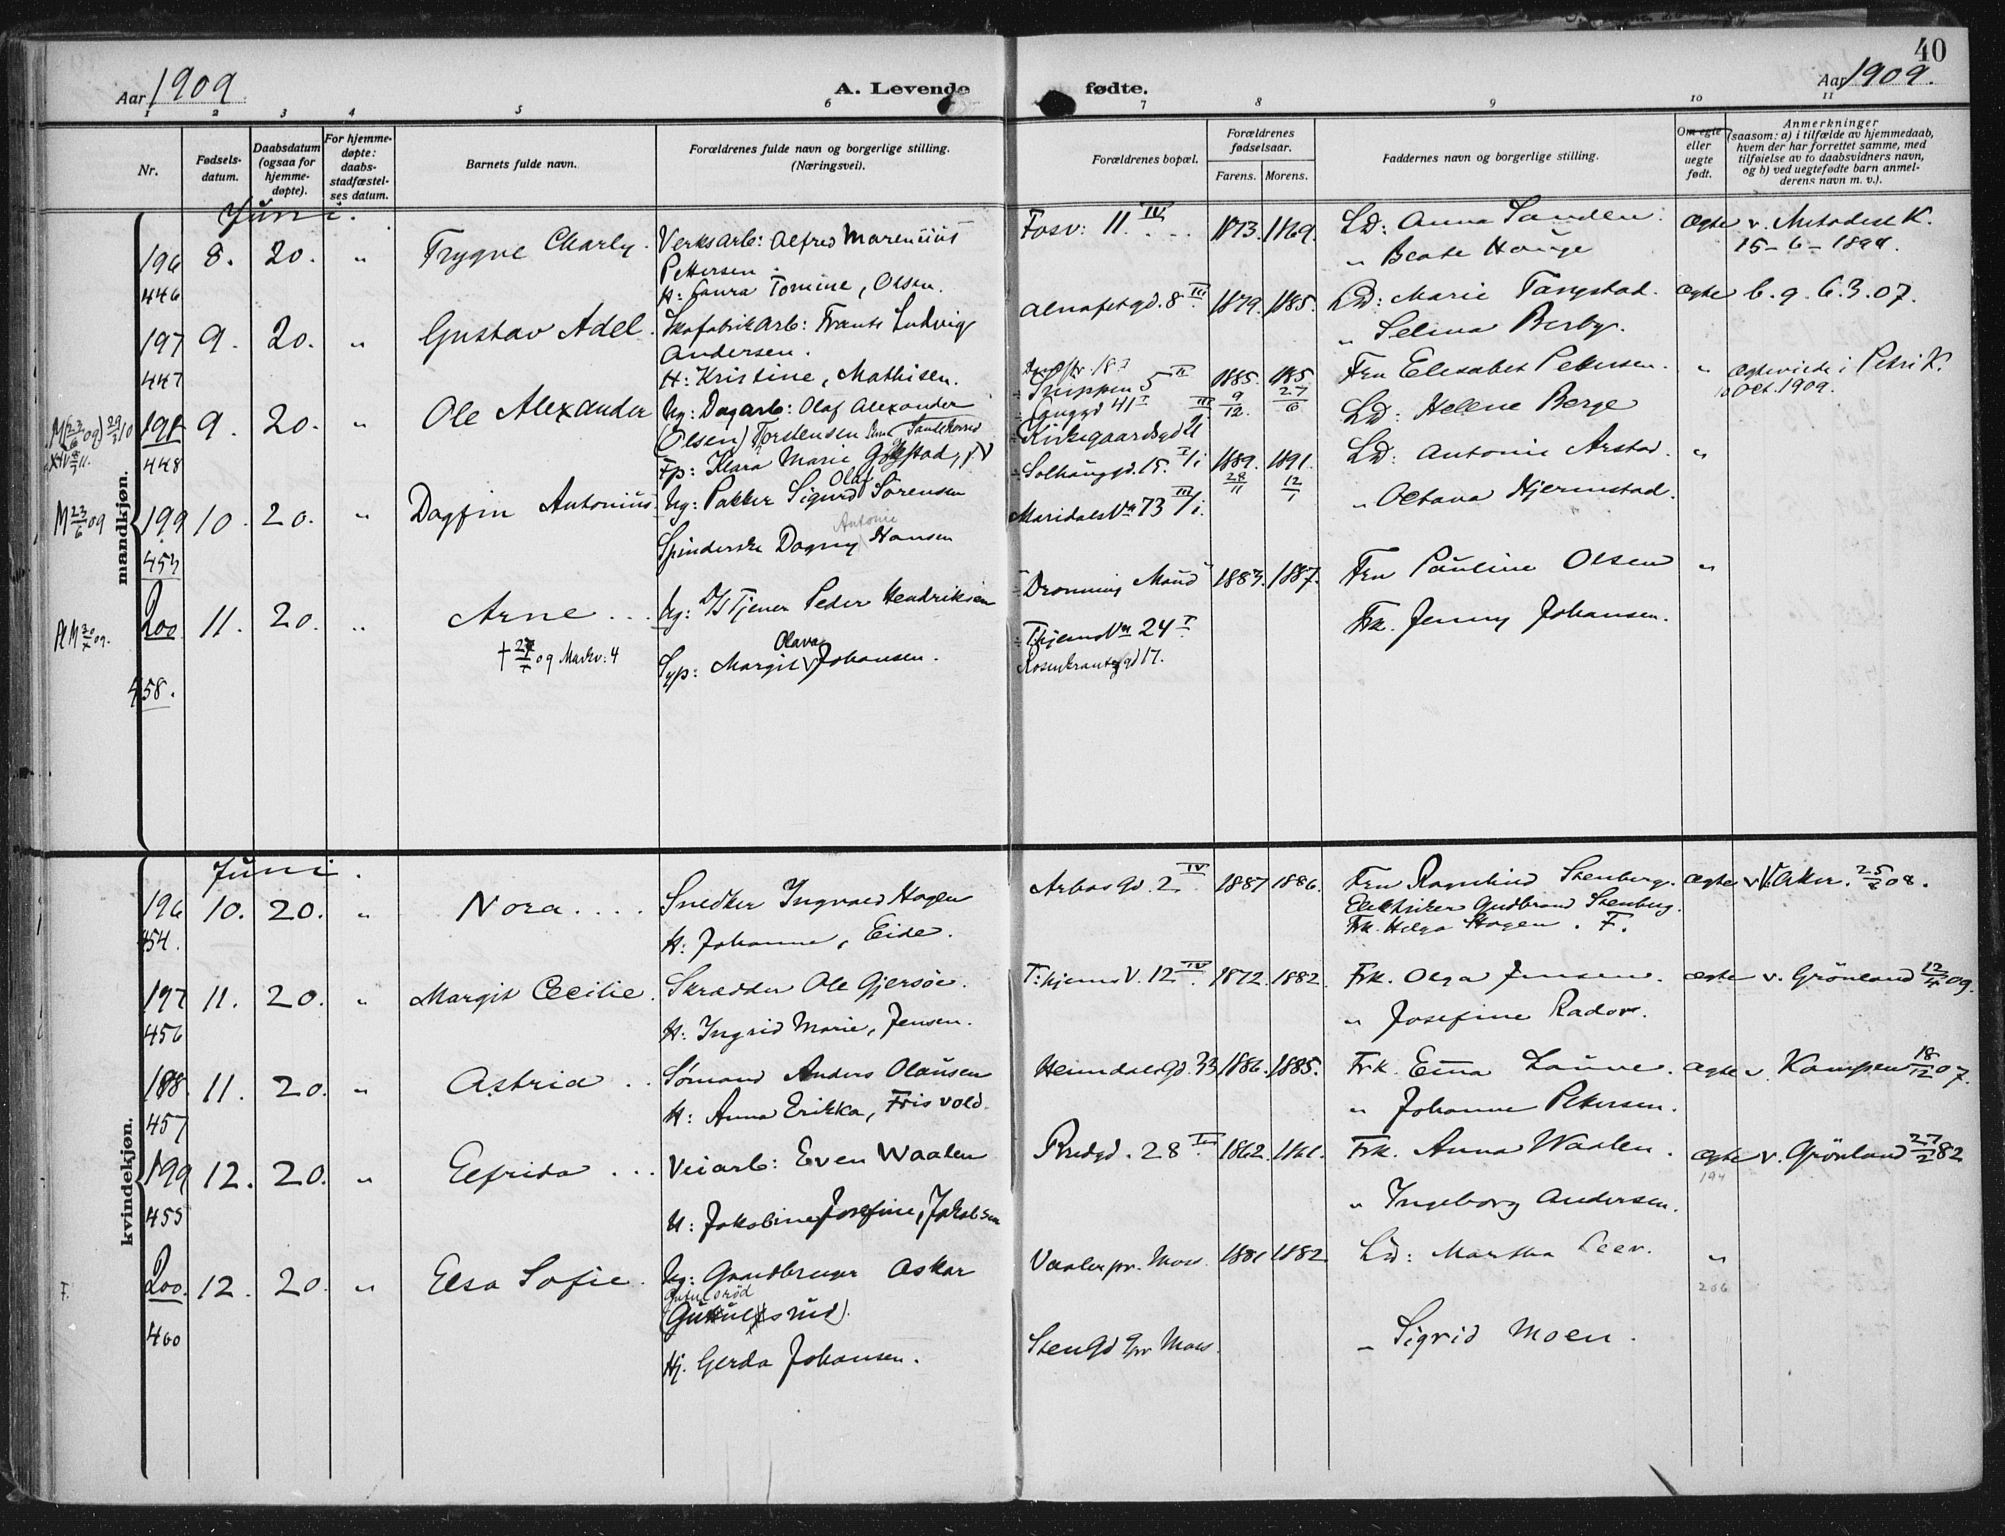 40
Aar 1909
A. Levende fødte.
Aar 1909.
1 2 3 4 5 6 7 8 9 10 11
Nr.
Fødsels-
datum.
Daabsdatum
(ogsaa for
hjemme-
døpte).
For hjemme-
døpte:
daabs-
stadfæstel-
ses datum.
Barnets fulde navn.
Forældrenes fulde navn og borgerlige stilling.
(Næringsvei).
Forældrenes bopæl.
Forældrenes
fødselsaar.
Farens. Morens.
Faddernes navn og borgerlige stilling.
Om egte
eller
uegte
født.
Anmerkninger
(saasom: a) i tilfælde av hjemmedaab,
hvem der har forrettet samme, med
tilføielse av to daabsvidners navn,
og b) ved uegtefødte barn anmel-
derens navn m. v.).
mandkjøn.
Juni.
196 8. 20. " Trygve Charly. Verksarb: Alfred Marensius Fosv: 11 IV 1873. 1869. Ld: Anna Sanden. ægte v. Metodist K.
Pettersen. " Beate Hauge 15-6-1894.
446 H: Laura Tomine, Olsen.
197 9. 20. " Gustav Adel. Skofabrikarb: Frants Ludvig 8 III 1879. 1885. Ld: Marie Tangstad. ægte b. g. 6.3.07.
Andersen. " Selma Berby.
447 H: Kristine, Mathisen.
198 9. 20. " Ole Alexander Ug: Dagarb: Olaf Alexander 5 II 1885. 9/12. 1885 27/6 Fru Elisabet Petersen. " Ægteviede i Petri K.
(Olsen) Torstensen 41 I Ld: Helene Berge Oct. 1909.
448 Fp: Klara Marie Kirkegaardsgd
199 10. 20. " Dagfin Antonius. Ug: Pakker Sigurd Olaf Sörensen Solhauggd. 15. I/i 1889. 28/11 1891. 12/1 Ld: Antonie Arstad. "
M 23/6 09
Spinderske Dagny Antonie Hansen Maridalsvn 73 III/i. " Octava Hjermstad.
453
200 11. 20. " Arne Ug: D/S Tjener Peder Hendriksen "Dronning Maud" 1883. 1887. Fru Pauline Olsen "
† 09 Markv: 4 Syp: Margit Olava Johansen. T:hjemsvn 24 I Frk. Jenny Johansen.
Rosenkrantzgd 17.
458.
kvindekjøn.
Juni.
196 10. 20. " Nora Snedker Ingvald Hagen Arbosgd. 2 IV 1887 1886. Fru Ragnhild Stenberg. ægte v V. Aker. 25/8 08.
Elektriker Gudbrand Stenberg.
454. H: Johanne, Eide. Frk. Helga Hagen. F.
197 11. 20. " Margit Cecilie. Skrædder Ole Gjersöe. T:hjems V. 12 IV 1872. 1882. Frk. Olga Jensen. ægte v. Grönland 12/4 09.
456 H: Ingrid Marie, Jensen. " Josefine Radov.
198 11. 20. " Astrid Sømand Anders Olausen Heimdalsgd. 33 1886. 1885. Frk. Ema Laune. ægte v. Kampen 18/12 07.
457 H: Anna Erikka, Frisvold. " Johanne Petersen.
199 12. 20. " Elfrida Veiarb: Even Waalen Rudgd. 28 1862. 1861. Frk. Anna Waalen. ægte v. Grönland 27/2 82
194
455 H: Jakobine Josefine, Jakobsen " Ingeborg Andersen.
200. 12. 20. " Elsa Sofie. Ug: Gaardbruger Oskar Vaaler pr. Moss 1881 1882 Ld: Martha Leer. "
206
F.
460 Hj. Gerda Johansen. Stengd pr Moss. " Sigrid Moen.